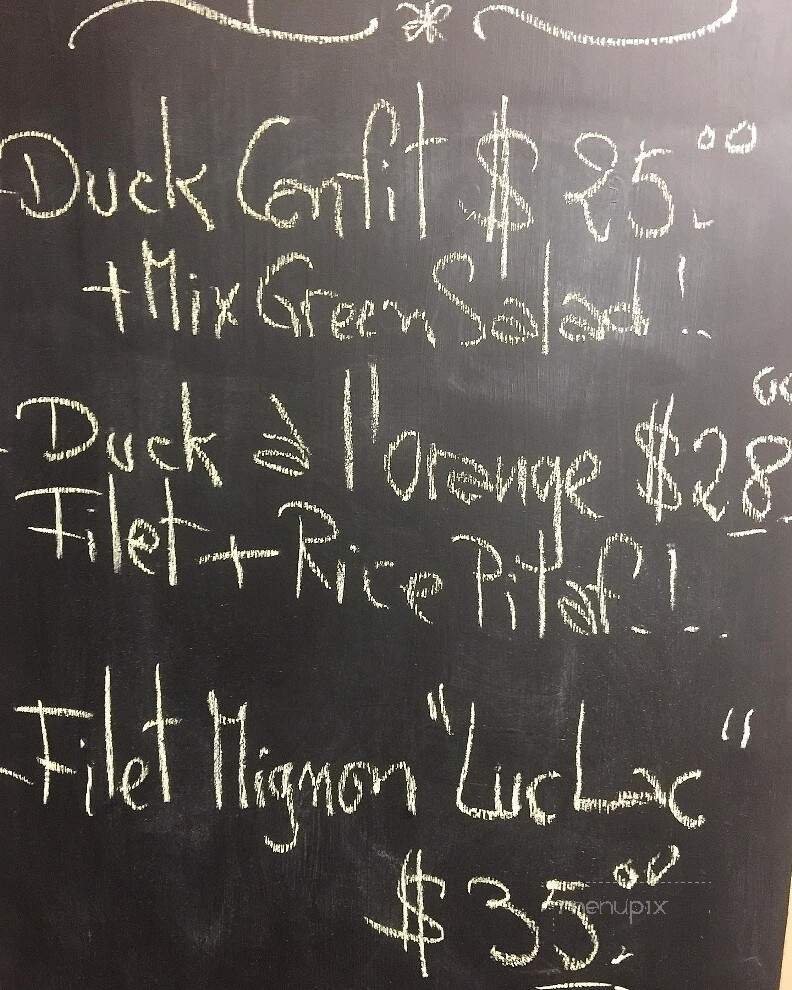 Duck Confit $25.00
+ Mix Green Salad!
- Duck à l'orange $28.00
Filet + Rice Pilaf.!..
- Filet Mignon "Luc Lac"
$35.00
menupix